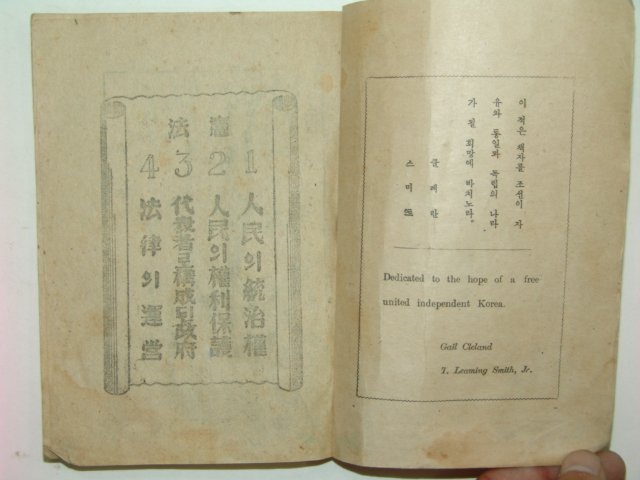 憲法
1 人民의統治權
2 人民의權利保護
3 代表者로構成된政府
4 法律의運營
이 적은 책자를 조선이 자
유와 통일과 독립의 나라
가 될 희망에 바치노라.
클레란
스미
Dedicated to the hope of a free
united independent Korea.
Gail Cleland
T. Leaming Smith, Jr.